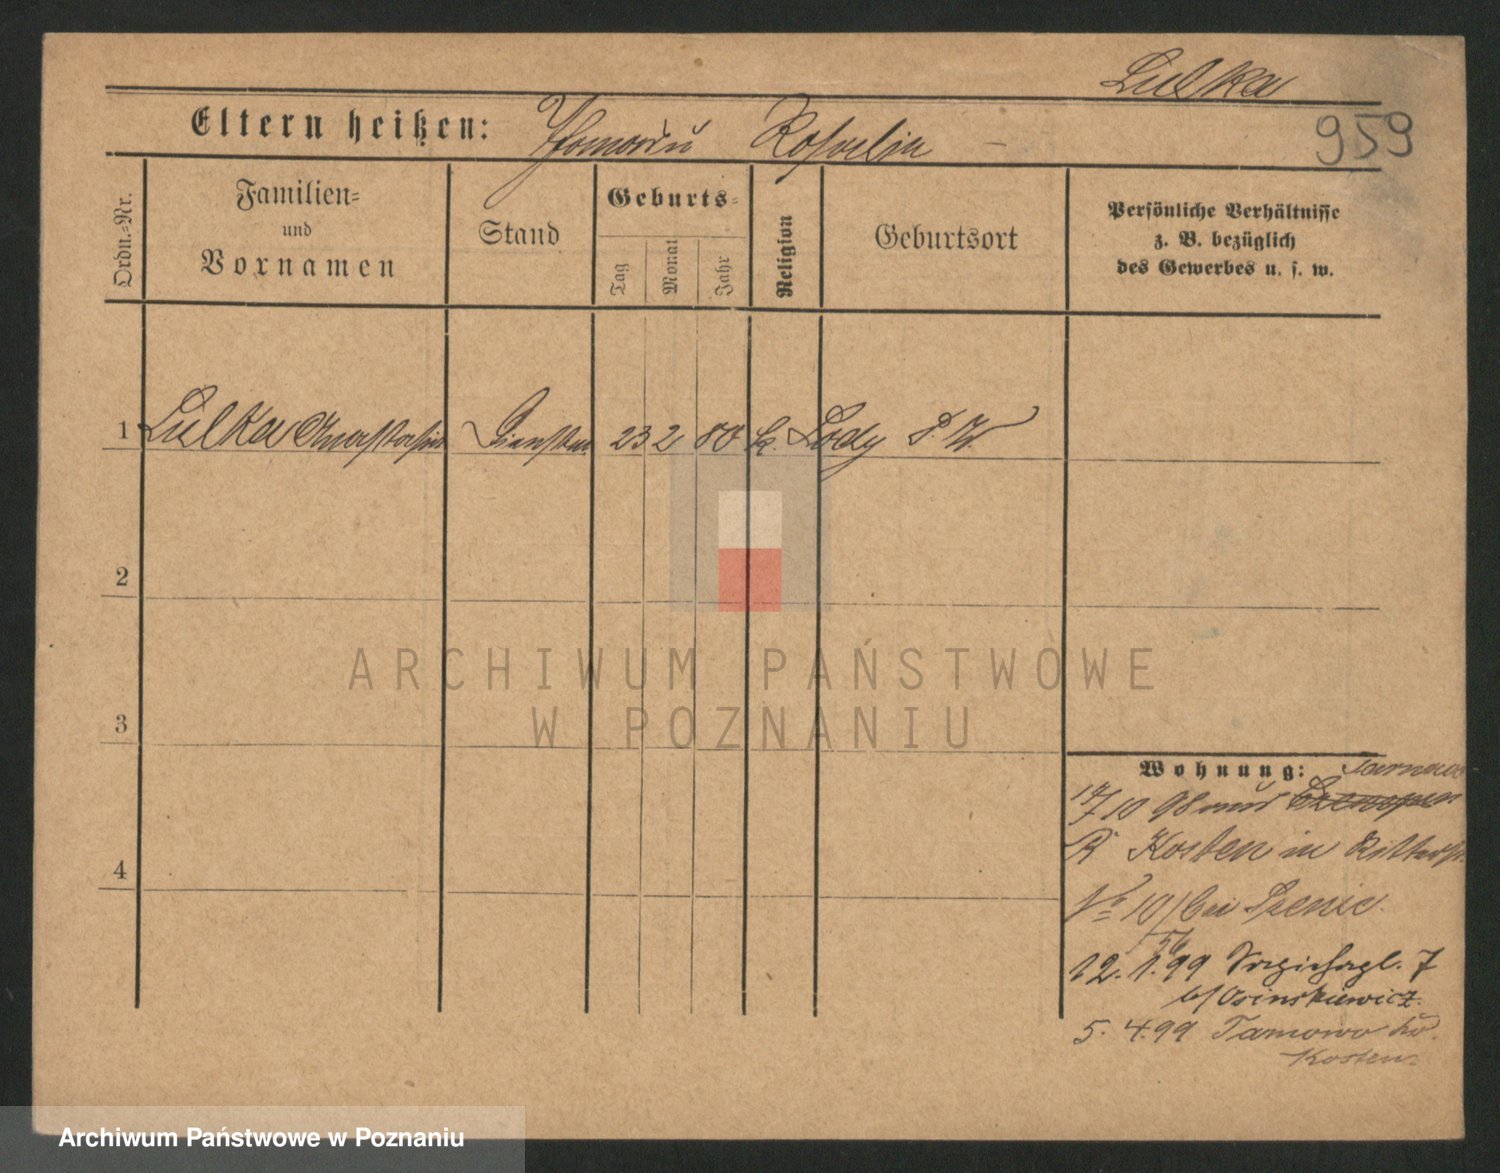 Lulka
959
Eltern heißen: Thomas u Rosalia –
Ordn.-Nr.
Familien-
und
Vornamen
Stand
Geburts-
Tag
Monat
Jahr
Religion
Geburtsort
Persönliche Verhältnisse
z. B. bezüglich
des Gewerbes u. s. w.
1 Lulka Anastasia 23 2 80 k. Lody P. W
2
3
4
Wohnung:
10 98 aus
Kosten in Ritterstr.
No 10/ bei
12. 1. 99 7
b/ Osinskiewicz.
5. 4. 99 Tarnowo Kr.
Kosten
ARCHIWUM PAŃSTWOWE
W POZNANIU
Archiwum Państwowe w Poznaniu